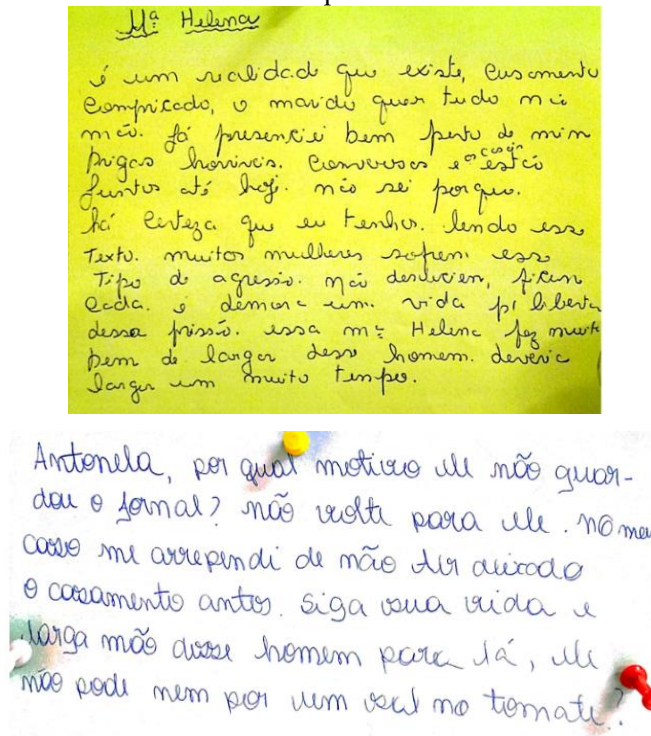 Mª Helena
é um realidad que existe, casamento
Compricado, o marido quer tudo na
mão. Já presenciei bem perto de min
brigas horríveis. Conversas e os casais estão
juntos até hoj. não sei porque.
há certeza que eu tenho. lendo esse
Texto. muitos mulheres sofrem esse
Tipo de agressão. não ficam
é demora um vida p/ liberta
dessa prisão. essa mª Helena fez muito
bem de largar dess homem. deveria
largar um muito tempo.
Antonela, por qual motivo ele não guar-
dou o jornal? não volta para ele. no meu
caso me arrependi de não ter deixado
o casamento antes. Siga sua vida e
larga mão desse homem para lá, ele
não pode nem por um sal no tomate?